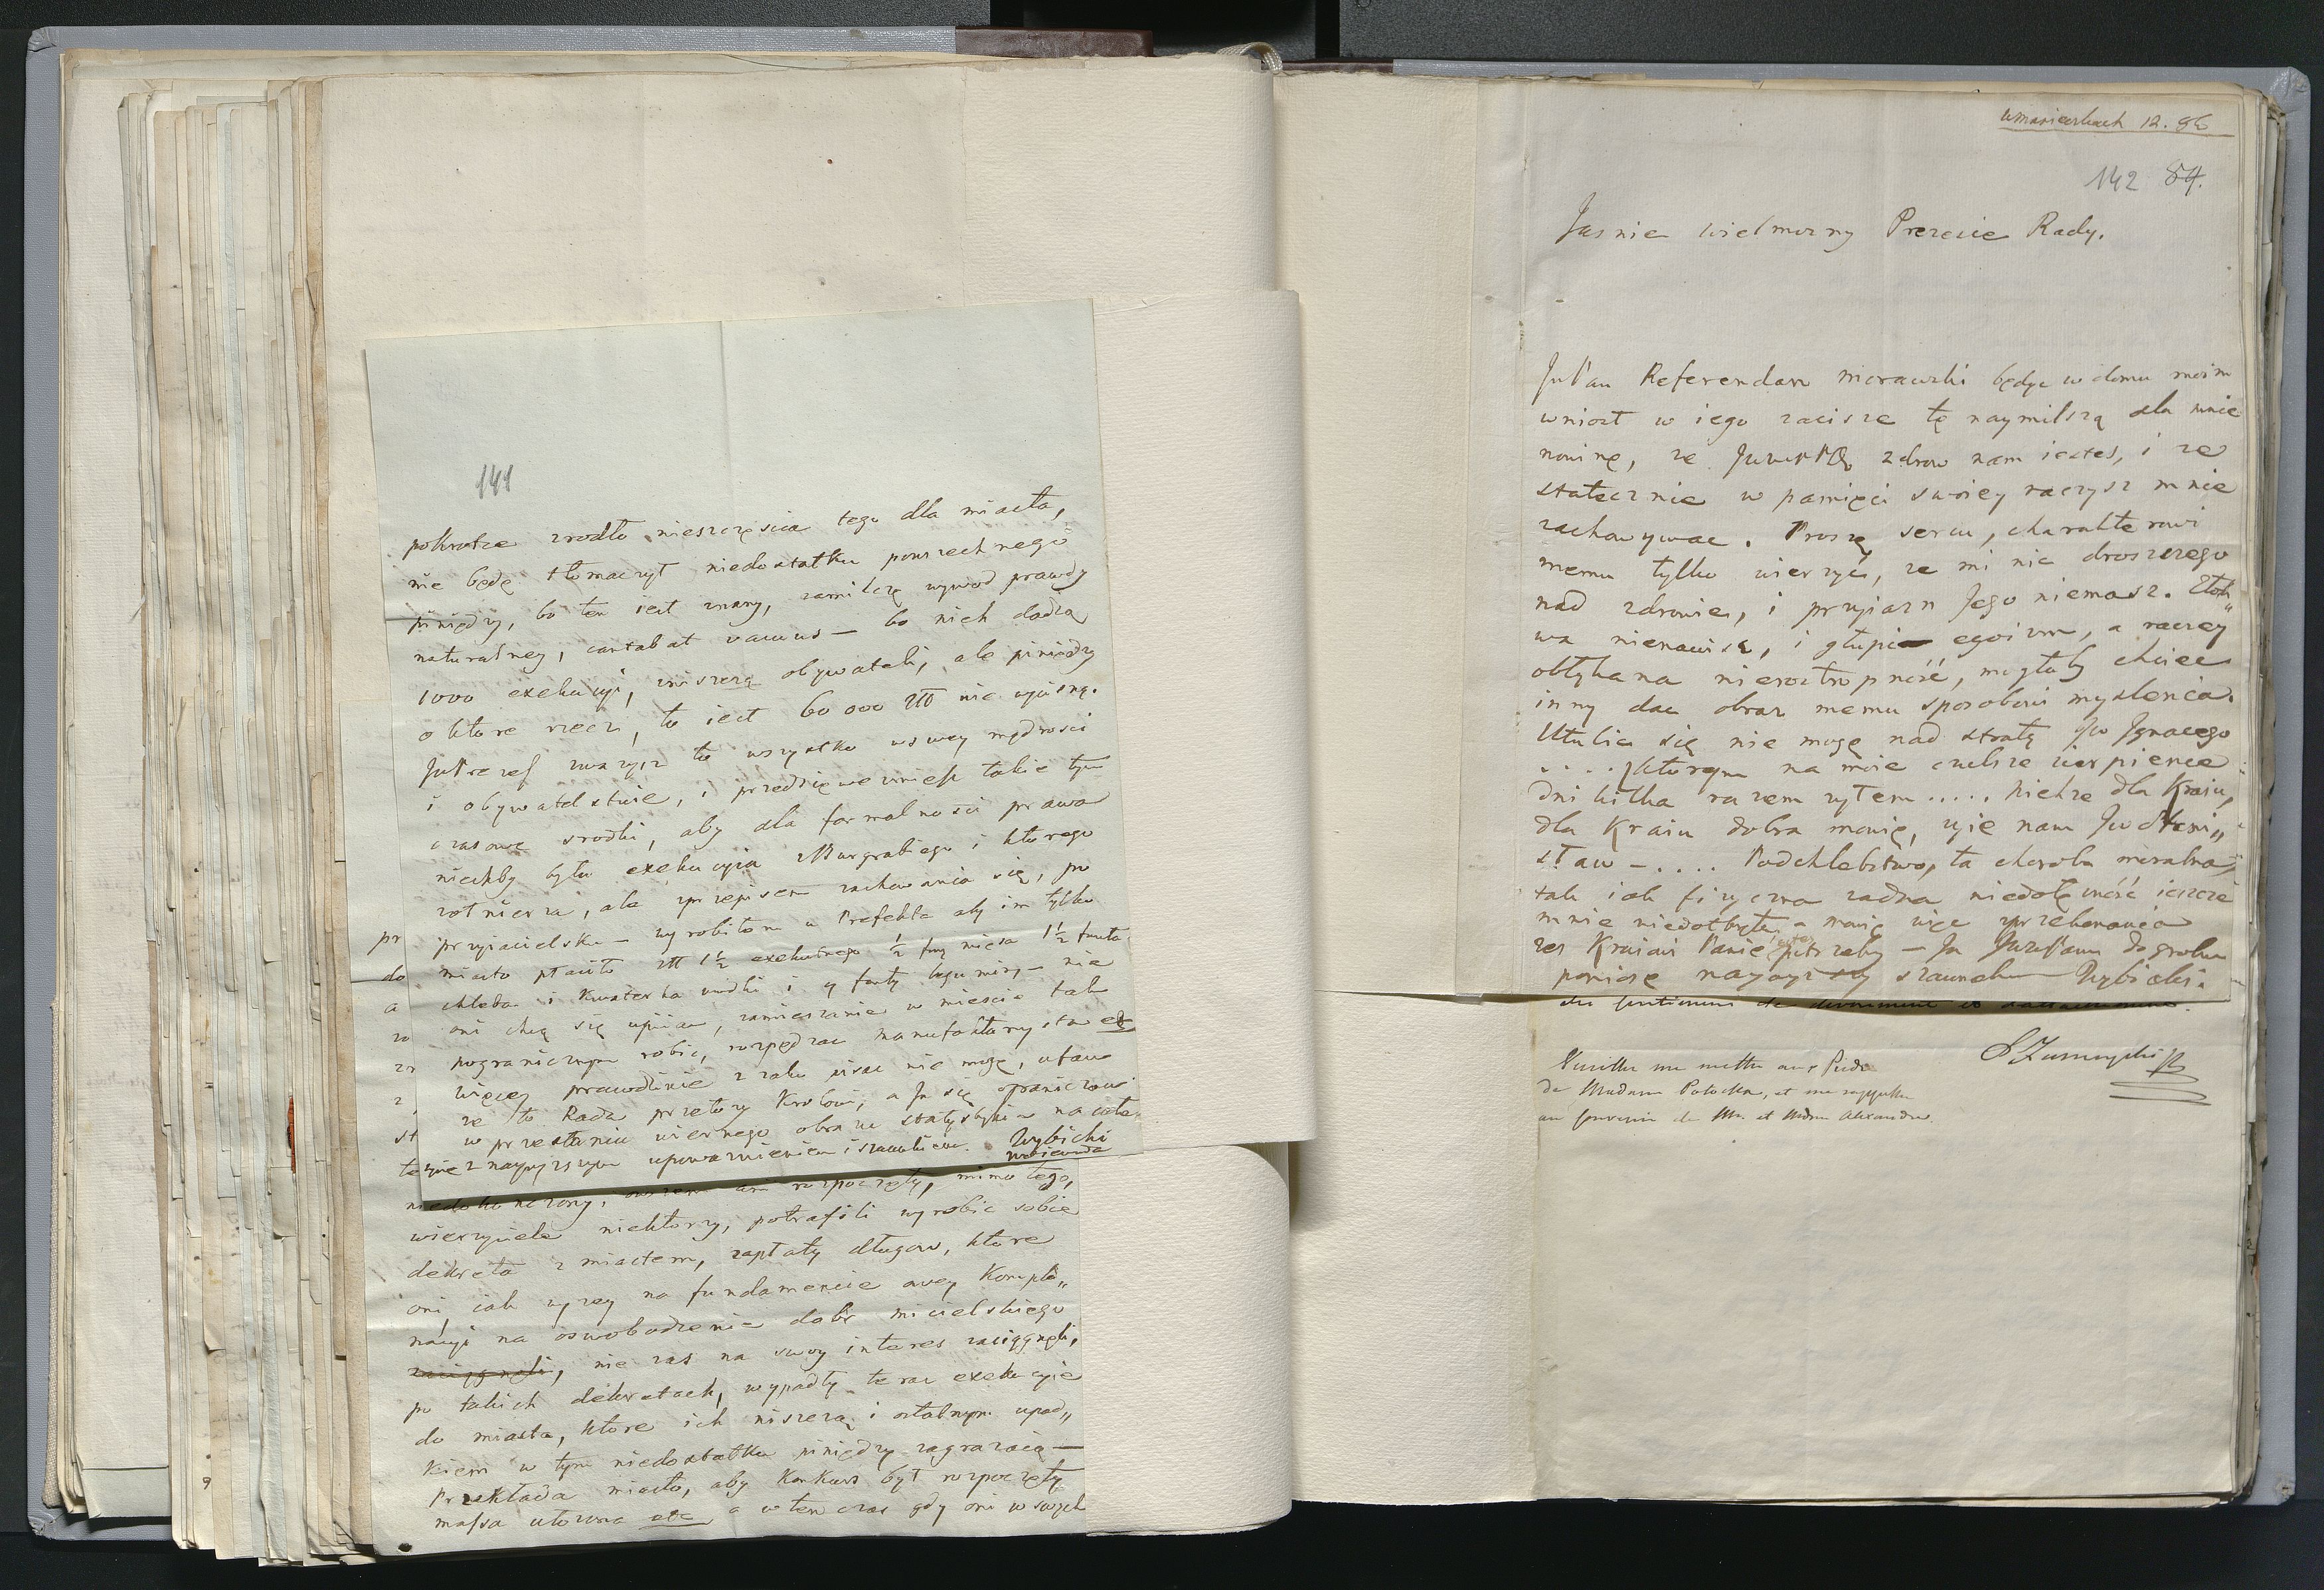 141
pokrotce zrodło nieszczęscia tego dla miasta,
nie będę tłomaczył niedostatku powszechnego
piniędzy, bo ten iest znany, zamilczę wywod prawdy
naturalney, cantabat vacuus — bo nich dadzą
1000 exekucyi, zniszczą obywateli, ale piniędzy
o ktore rzecz, to iest 60 000 nie wycisną.
zwazysz to wszystko w swey mądrosci
i obywatelstwie, i przedsięwezmiesz takie tym
czasowe srodki, aby dla formalnosci prawa
niechby była exekucyia z Burgrabiego i ktorego
zołnierza, ale z przepisem zachowania się, po
przyiacielsku — wyrobiłem u Prefekta aby im tylko
miasto płaciło 1½ exekutnego ½ mięsa 1½ funta
chleba i kwaterka wodki i funty leguminy — nie
oni chcą się upiiac, zamieszanie w miescie tak
pogranicznym robic, rozpędzac manufaktury etc etc
więcey prawdziwie z zalu pisac nie mogę, ufam
ze to Rada przełozy Krolowi, a Ja się ogranicza
w przesłaniu wiernego obrazu statystyki
z naywyzszym upowaznieniem i szacunkiem. Wybicki
Woiewoda
pr
do
a
zo
zr
z
st
te
niedokonczony, ani rozpoczęty, mimo tego,
wierzyciele niektorzy, potrafili wyrobic sobie
dekreta z miastem, zapłaty długow, ktore
oni iak wyzey na fundamencie owey Kompla„
nacyi na oswobodzenie dobr mieielskiego
zaciągneli, nie zas na swoy interes zaciągneli,
po takich dekretach, wypadły teraz exekucyie
do miasta, ktore ich niszczą i ostatnym upad„
kiem w tym niedostatku piniędzy zagrazaią —
Przekłada miasto, aby Konkurs był rozpoczęty
massa utworzona etc a w ten czas gdy oni w swych
12. 86
142 84.
Jasnie Wielmozny Prezesie Rady.
Referendarz Morawski będąc w domu moim
wniosł w iego zacisze tę naymilszą dla mnie
nowinę, ze zdrow nam iestes, i ze
statecznie w pamięci swoiey raczysz mnie
zachowywac. Proszę sercu, charakterowi
memu tylko wierzyć, ze mi nic droszszego
nad zdrowie, i przyiazn Jego niemasz. Złosli„
wa nienawisc, i głupi egoizm, a raczey
obłąkana nieroztropność, mogłaby chciec
inny dac obraz memu sposobowi myslenia.
Utulic się nie mogę nad stratą Jw Ignacego
.... z ktorym na moie cierpienie
dni kilka razem zyłem ..... Niechze dla Kraiu,
dla Kraiu dobra mowię, zyie nam Jw Stani„
sław — .... Podchlebstwo, ta choroba moralna,
tak iak fizyczna zadna niedołęzność ieszcze
mnie niedotknęła — mowię więc z przekonania
zes Kraiowi Panie potrzebny — Ja do grobu
poniosę naywyzszy szacunek Wybicki.
S. Zamoyski
Veuillez me mettre aux Pieds
de Madame Potocka, et me rappeller
au souvenir de Mr. et Mdme Alexandre.